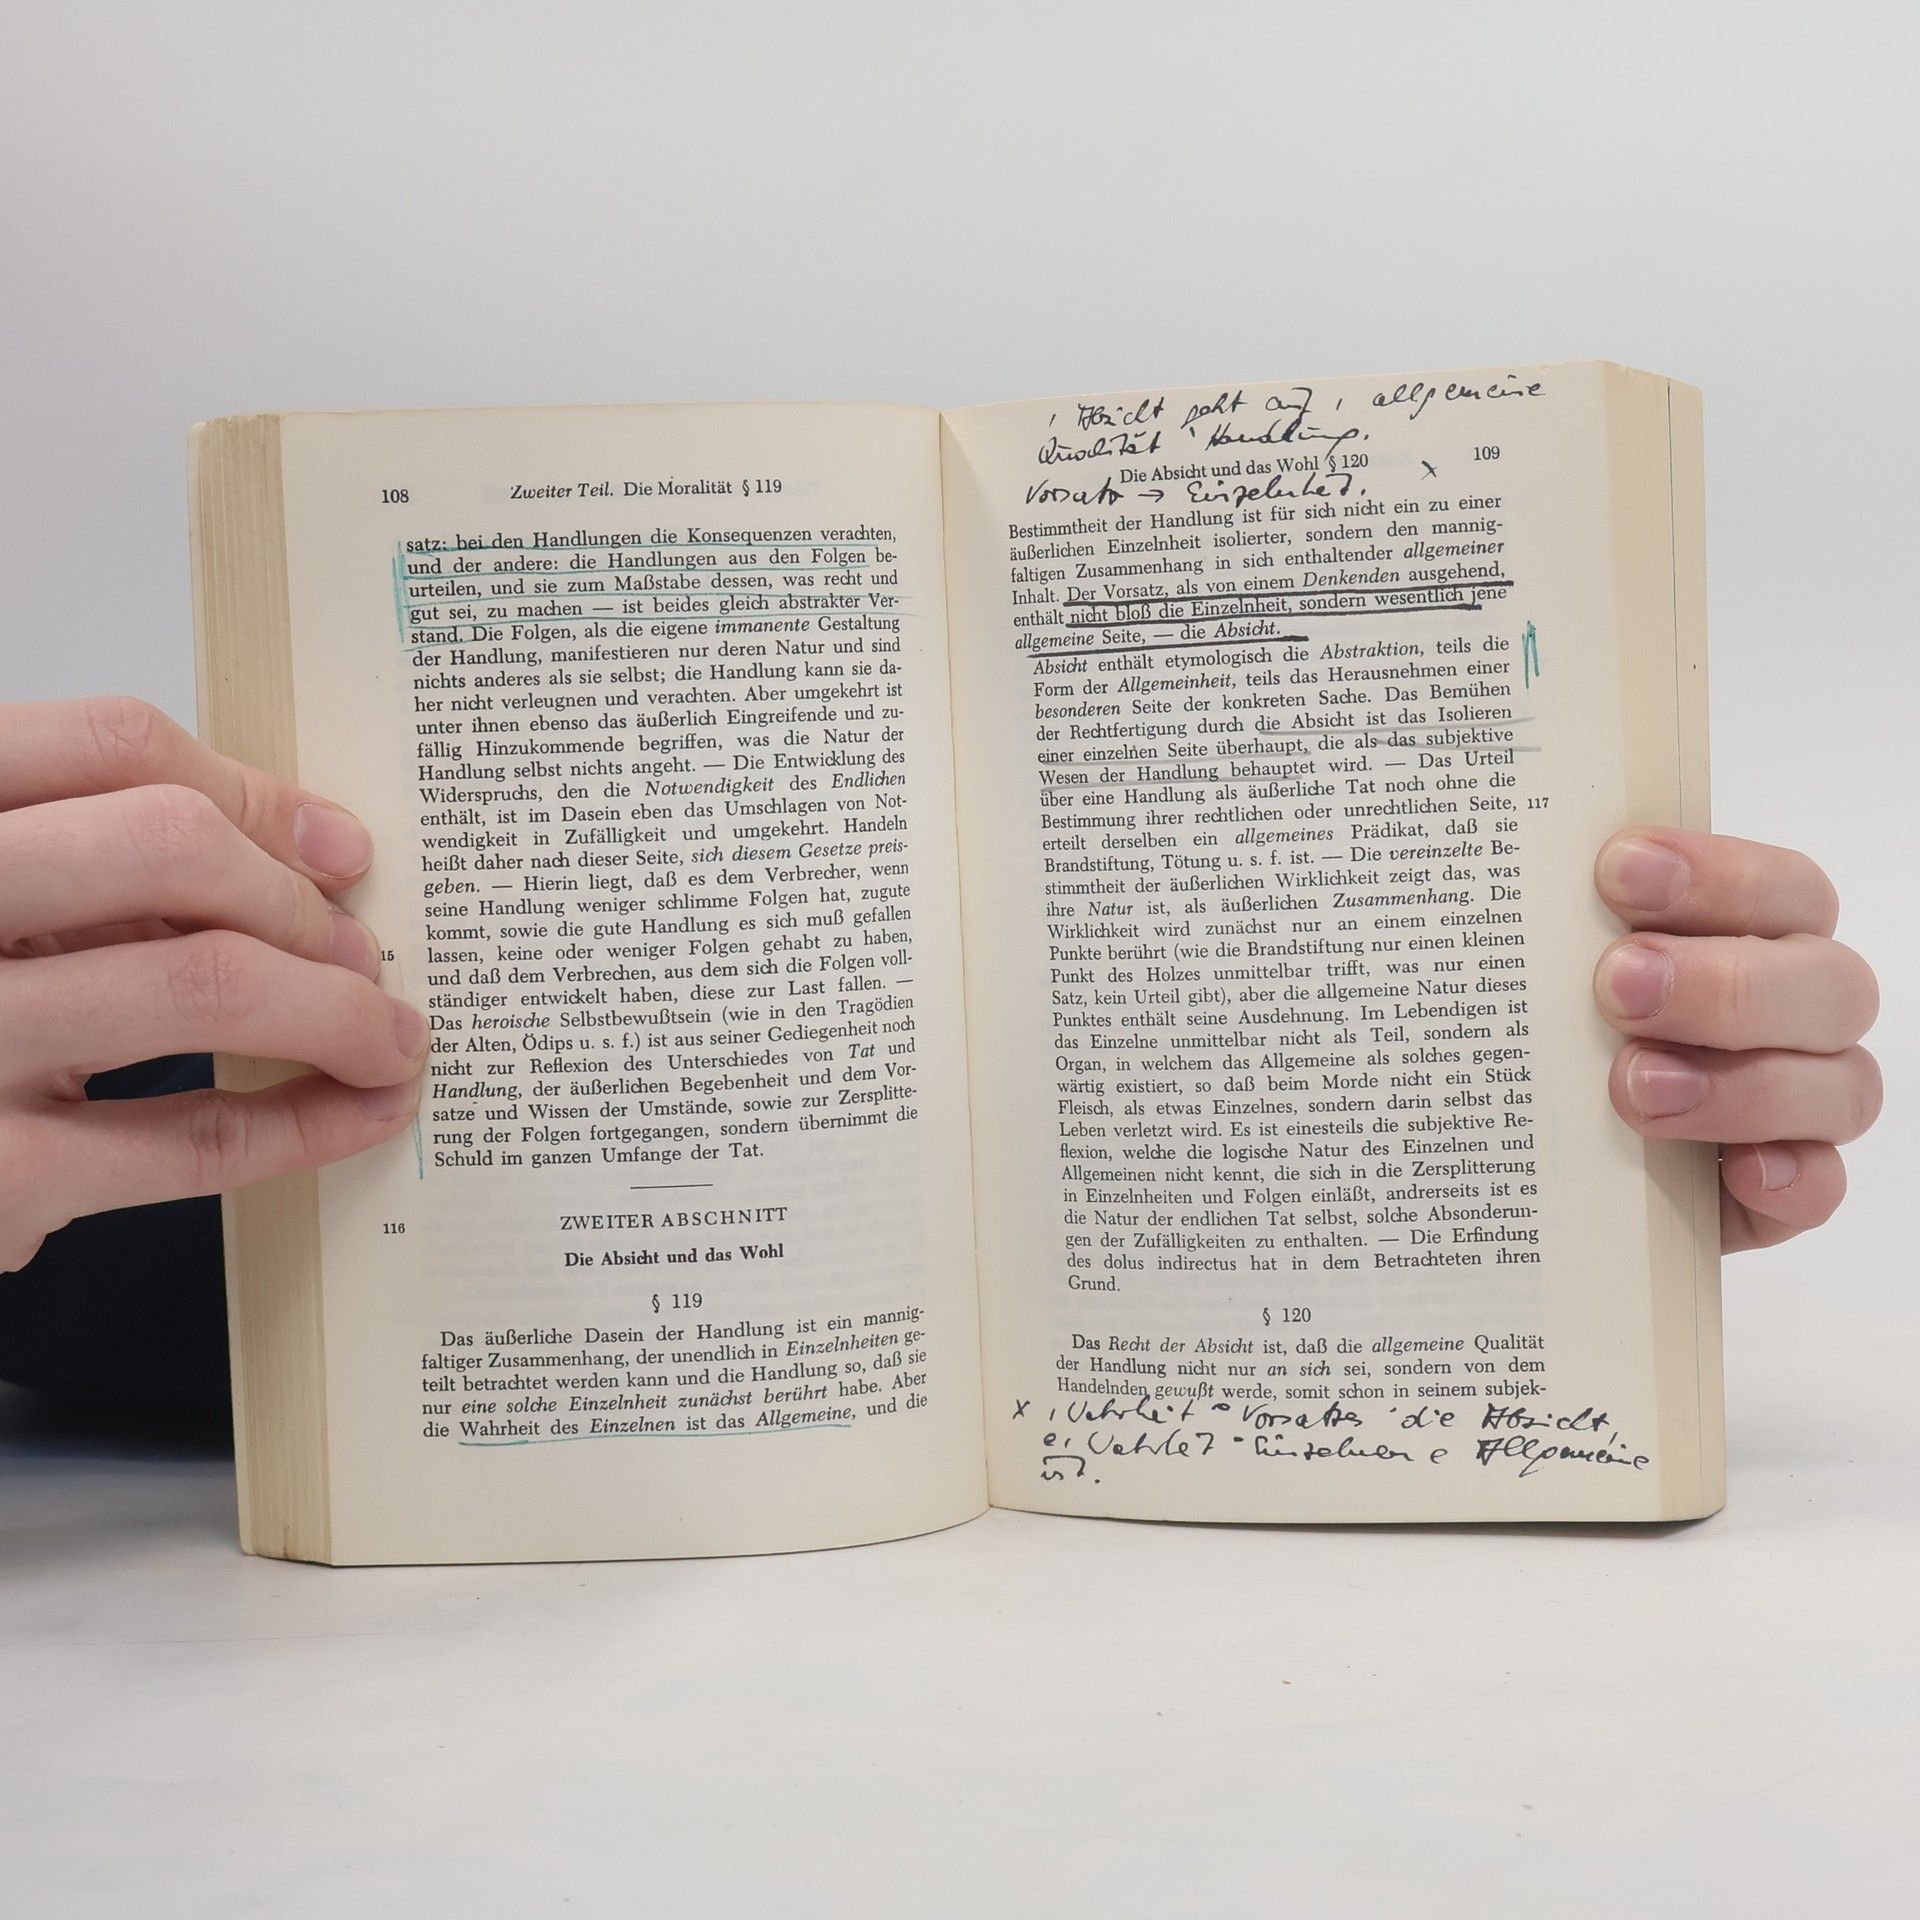 108 Zweiter Teil. Die Moralität § 119
satz: bei den Handlungen die Konsequenzen verachten,
und der andere: die Handlungen aus den Folgen be-
urteilen, und sie zum Maßstabe dessen, was recht und
gut sei, zu machen — ist beides gleich abstrakter Ver-
stand. Die Folgen, als die eigene immanente Gestaltung
der Handlung, manifestieren nur deren Natur und sind
nichts anderes als sie selbst; die Handlung kann sie da-
her nicht verleugnen und verachten. Aber umgekehrt ist
unter ihnen ebenso das äußerlich Eingreifende und zu-
fällig Hinzukommende begriffen, was die Natur der
Handlung selbst nichts angeht. — Die Entwicklung des
Widerspruchs, den die Notwendigkeit des Endlichen
enthält, ist im Dasein eben das Umschlagen von Not-
wendigkeit in Zufälligkeit und umgekehrt. Handeln
heißt daher nach dieser Seite, sich diesem Gesetze preis-
geben. — Hierin liegt, daß es dem Verbrecher, wenn
seine Handlung weniger schlimme Folgen hat, zugute
kommt, sowie die gute Handlung es sich muß gefallen
15 lassen, keine oder weniger Folgen gehabt zu haben,
und daß dem Verbrechen, aus dem sich die Folgen voll-
ständiger entwickelt haben, diese zur Last fallen. —
Das heroische Selbstbewußtsein (wie in den Tragödien
der Alten, Ödips u. s. f.) ist aus seiner Gediegenheit noch
nicht zur Reflexion des Unterschiedes von Tat und
Handlung, der äußerlichen Begebenheit und dem Vor-
satze und Wissen der Umstände, sowie zur Zersplitte-
rung der Folgen fortgegangen, sondern übernimmt die
Schuld im ganzen Umfange der Tat.
116 ZWEITER ABSCHNITT
Die Absicht und das Wohl
§ 119
Das äußerliche Dasein der Handlung ist ein mannig-
faltiger Zusammenhang, der unendlich in Einzelnheiten ge-
teilt betrachtet werden kann und die Handlung so, daß sie
nur eine solche Einzelnheit zunächst berührt habe. Aber
die Wahrheit des Einzelnen ist das Allgemeine, und die
Absicht geht auf allgemeine
Qualität Handlung.
Die Absicht und das Wohl § 120 x 109
Vorsatz → Einzelnheit.
Bestimmtheit der Handlung ist für sich nicht ein zu einer
äußerlichen Einzelnheit isolierter, sondern den mannig-
faltigen Zusammenhang in sich enthaltender allgemeiner
Inhalt. Der Vorsatz, als von einem Denkenden ausgehend,
enthält nicht bloß die Einzelnheit, sondern wesentlich jene
allgemeine Seite, — die Absicht.
Absicht enthält etymologisch die Abstraktion, teils die
Form der Allgemeinheit, teils das Herausnehmen einer
besonderen Seite der konkreten Sache. Das Bemühen
der Rechtfertigung durch die Absicht ist das Isolieren
einer einzelnen Seite überhaupt, die als das subjektive
Wesen der Handlung behauptet wird. — Das Urteil
über eine Handlung als äußerliche Tat noch ohne die
Bestimmung ihrer rechtlichen oder unrechtlichen Seite, 117
erteilt derselben ein allgemeines Prädikat, daß sie
Brandstiftung, Tötung u. s. f. ist. — Die vereinzelte Be-
stimmtheit der äußerlichen Wirklichkeit zeigt das, was
ihre Natur ist, als äußerlichen Zusammenhang. Die
Wirklichkeit wird zunächst nur an einem einzelnen
Punkte berührt (wie die Brandstiftung nur einen kleinen
Punkt des Holzes unmittelbar trifft, was nur einen
Satz, kein Urteil gibt), aber die allgemeine Natur dieses
Punktes enthält seine Ausdehnung. Im Lebendigen ist
das Einzelne unmittelbar nicht als Teil, sondern als
Organ, in welchem das Allgemeine als solches gegen-
wärtig existiert, so daß beim Morde nicht ein Stück
Fleisch, als etwas Einzelnes, sondern darin selbst das
Leben verletzt wird. Es ist einesteils die subjektive Re-
flexion, welche die logische Natur des Einzelnen und
Allgemeinen nicht kennt, die sich in die Zersplitterung
in Einzelnheiten und Folgen einläßt, andrerseits ist es
die Natur der endlichen Tat selbst, solche Absonderun-
gen der Zufälligkeiten zu enthalten. — Die Erfindung
des dolus indirectus hat in dem Betrachteten ihren
Grund.
§ 120
Das Recht der Absicht ist, daß die allgemeine Qualität
der Handlung nicht nur an sich sei, sondern von dem
Handelnden gewußt werde, somit schon in seinem subjek-
x Wahrheit Vorsatzes die Absicht,
Wahrheit Einzelnen Allgemeine
ist.